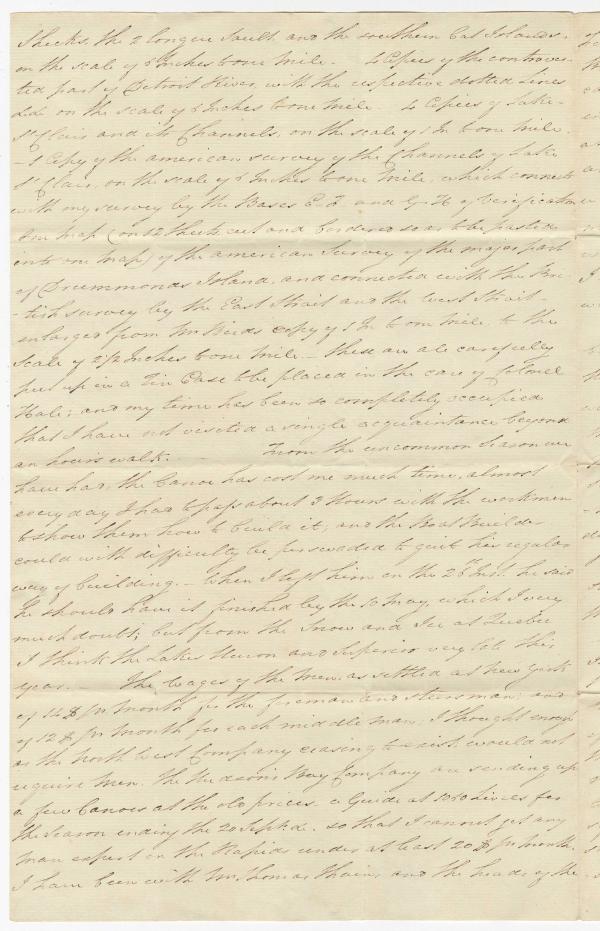 Sheets, the 2 longue Sault and the southern Cat Islands.
on the scale of 6 Inches to one Mile. 4 Copies of the controver-
ted part of Detroit River, with the respective dotted Lines
on the scale of 6 Inches to one Mile. 4 Copies of Lake
St Clair and its Channels, on the scale of 1 In to one Mile.
- 1 Copy of the american survey of the Channels of Lake
St Clair, on the scale of 6 Inches to one Mile, which connects
with my survey by the Bases E F and G H of verification
One Map (on 12 Sheets cut and bordered so as to be pasted
into one Map) of the american Survey of the major part
of Drummonds Island, and connected with the Bri-
-tish survey by the East Strait and the West Strait -
enlarged from Mr Birds copy of 1 In to one Mile, to the
scale of 2 1/2 Inches to one Mile - these are all carefully
put up in a Tin Case to be placed in the care of Colonel
Hale; and my time has been so completely occupied
that I have not visited a single acquaintance beyond
an hours walk. From the uncommon Season we
have had, the Canoe has cost me much time, almost
every day I had to pass about 3 Hours with the workmen
to show them how to build it; and the Boat Builder
could with difficulty be perswaded to quit his regular
way of building. - When I left him on the 26th Inst. he said
he should have it finished by the 10 May, which I very
much doubt; but from the Snow and Ice at Quebec
I think the Lakes Huron and Superior very late this
year. - The Wages of the Men, as settled at New York
of 14 $ pr Month for the foreman and steersman; and
of 12 $ pr Month for each middle man; I thought enough
as the North West Company ceasing to exist would not
require Men. The Hudson's Bay Company are sending up
a few Canoes at the old prices. a Guide at 1050 Livres for
the Season ending the 20 Septr. so that I cannot get any
Man expert in the Rapids under at least 20 $ pr Month.
I have been with Mr Thomas Thain, and the heads of the